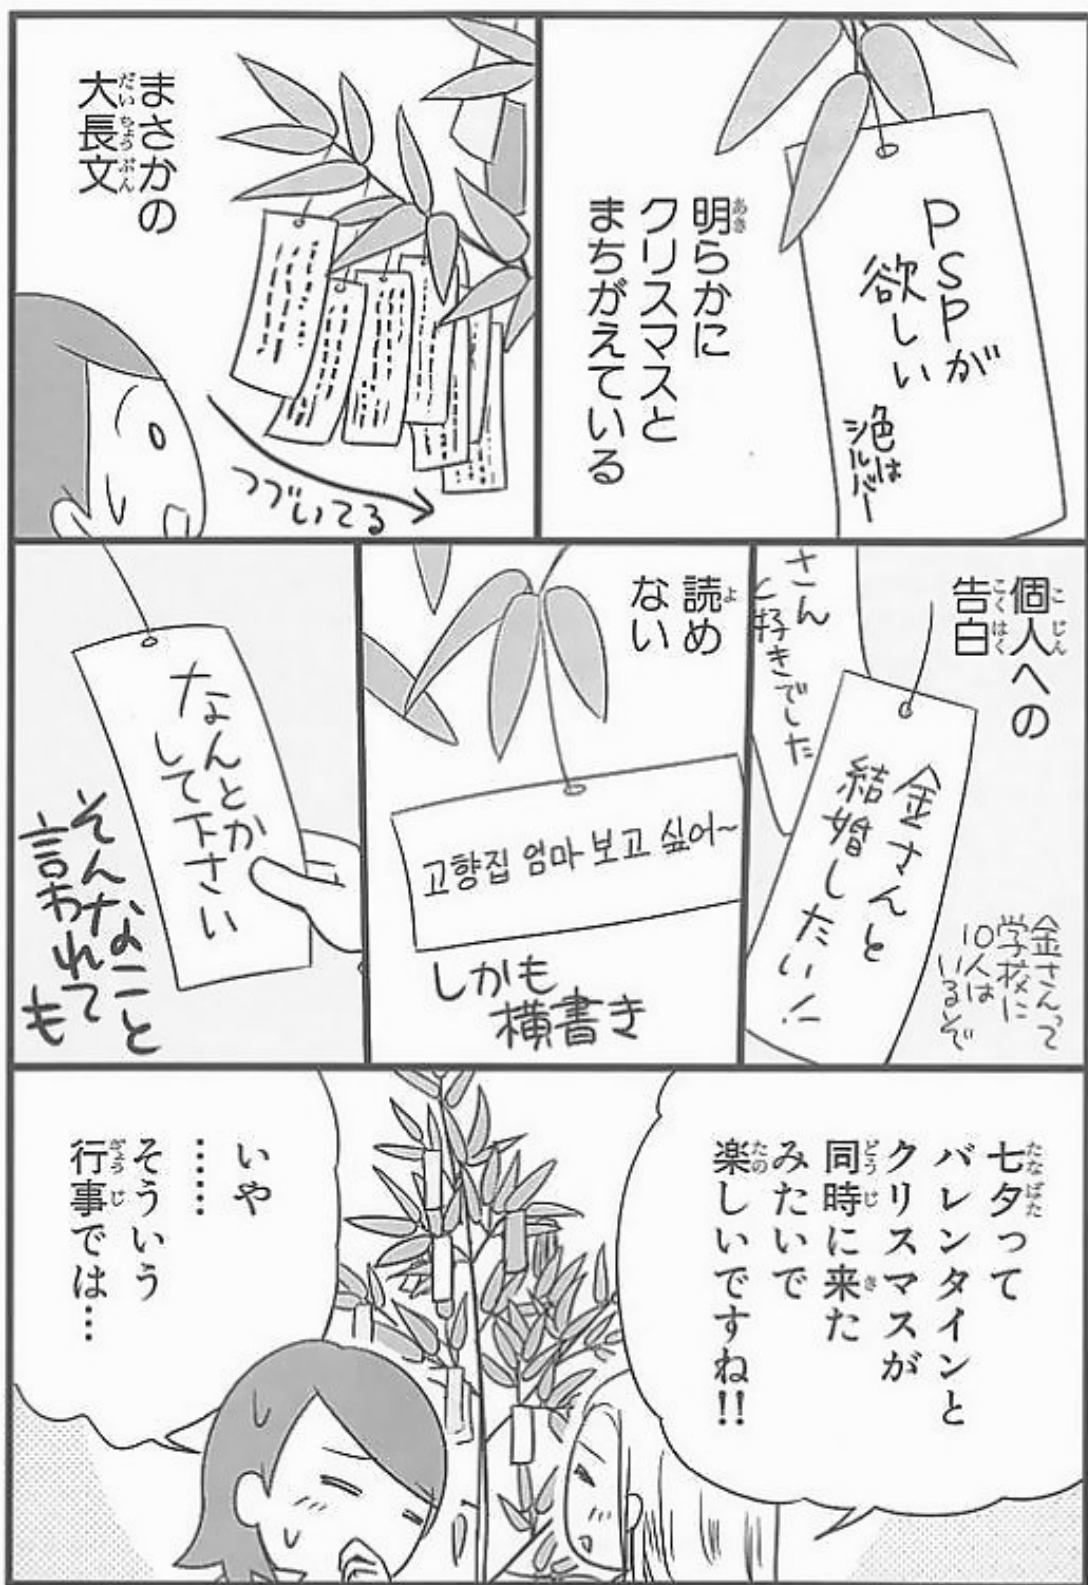 PSPが
欲しい
色は
シルバー
明らかに
クリスマスと
まちがえている
まさかの
大長文
つづいてる
個人への
告白
金さんと
結婚したい!!
さん
と好きでした
金さんって
学校に
10人は
いるぞ
読め
ない
고향집 엄마 보고 싶어~
しかも
横書き
なんとか
して下さい
そんなこと
言われて
も
七夕って
バレンタインと
クリスマスが
同時に来た
みたいで
楽しいですね!!
いや
……
そういう
行事では…